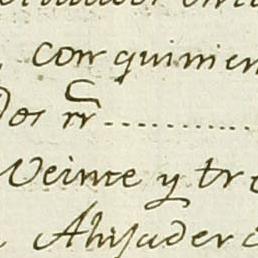 con quinien
Dos rr ............
Veinte y tre
Ahijadero